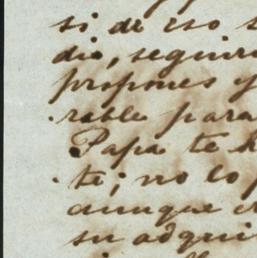 si de eso s
dio, seguir
propones y
rable para
Papa te h
te; no lo p
aunque e
su adqui